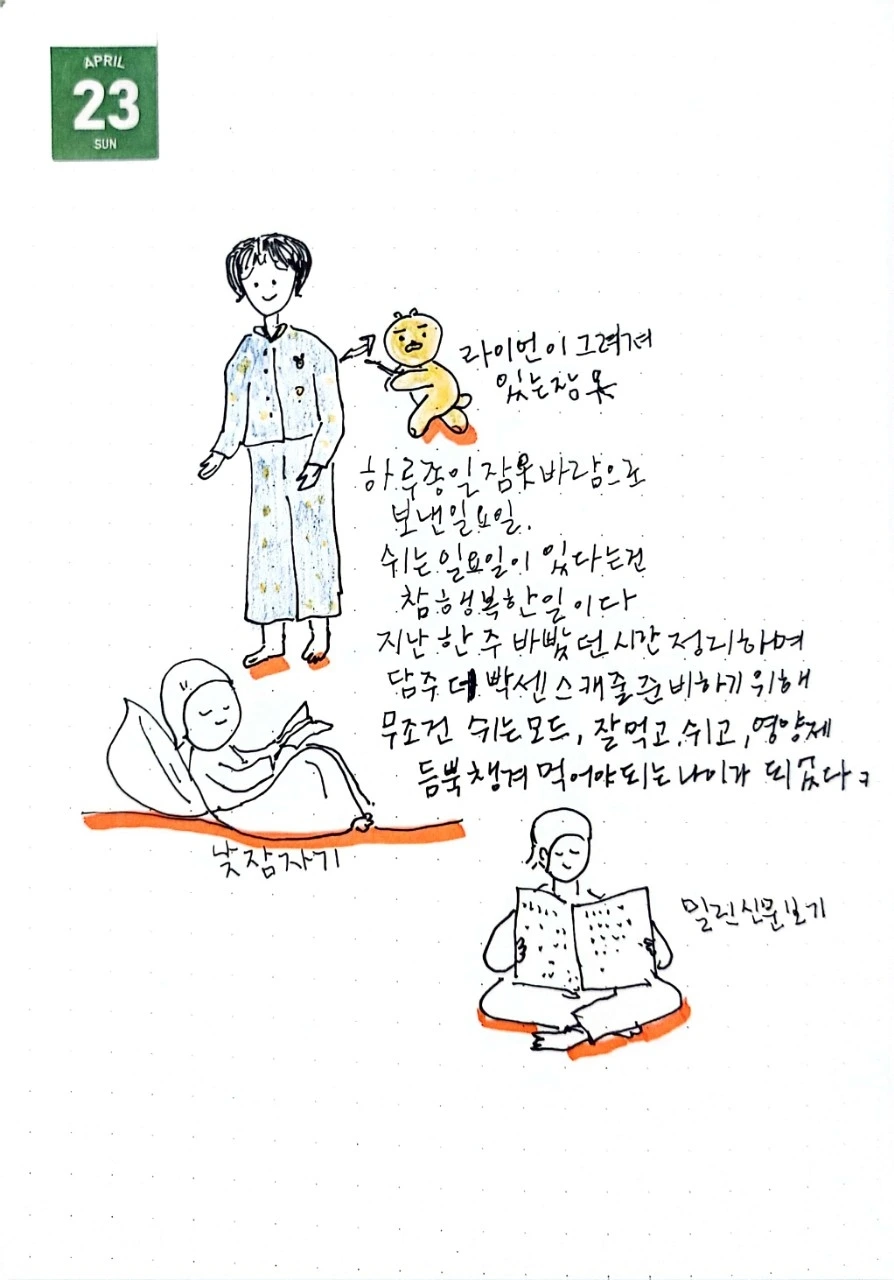 APRIL
23
SUN
라이언이 그려져
있는 잠옷
하루종일 잠옷바람으로
보낸일요일.
쉬는 일요일이 있다는건
참 행복한일이다
지난 한 주 바빴던 시간 정리하며
담주 더 빡센 스캐줄 준비하기 위해
무조건 쉬는모드, 잘먹고, 쉬고, 영양제
듬뿍 챙겨 먹어야되는 나이가 되었다ㅋ
낮잠자기
밀린신문보기